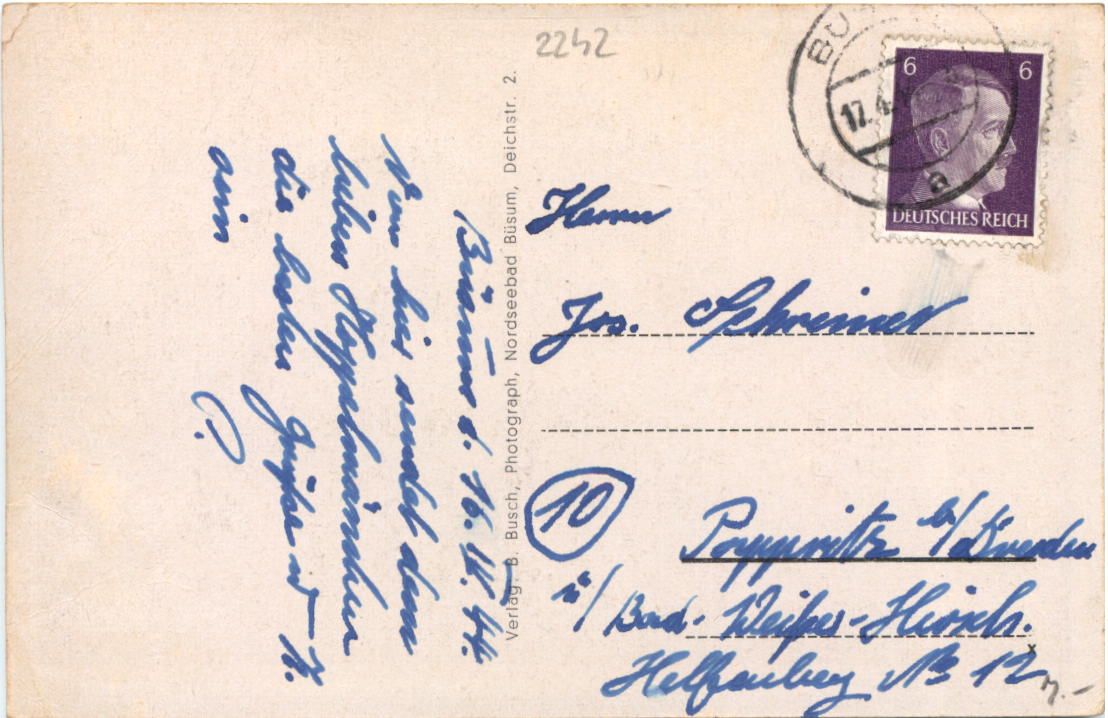 2242
BÜ
17.4.
a
6 6
DEUTSCHES REICH
Büsum d. 16. 4. 44.
Von hier sendet dem
lieben
die besten Grüße u
Verlag: B. Busch, Photograph, Nordseebad Büsum, Deichstr. 2.
Herrn
Jos. Schreiner
10
Pappritz b/Dresden
ü/Bad-Weißer-Hirsch.
Helfenberg No 12